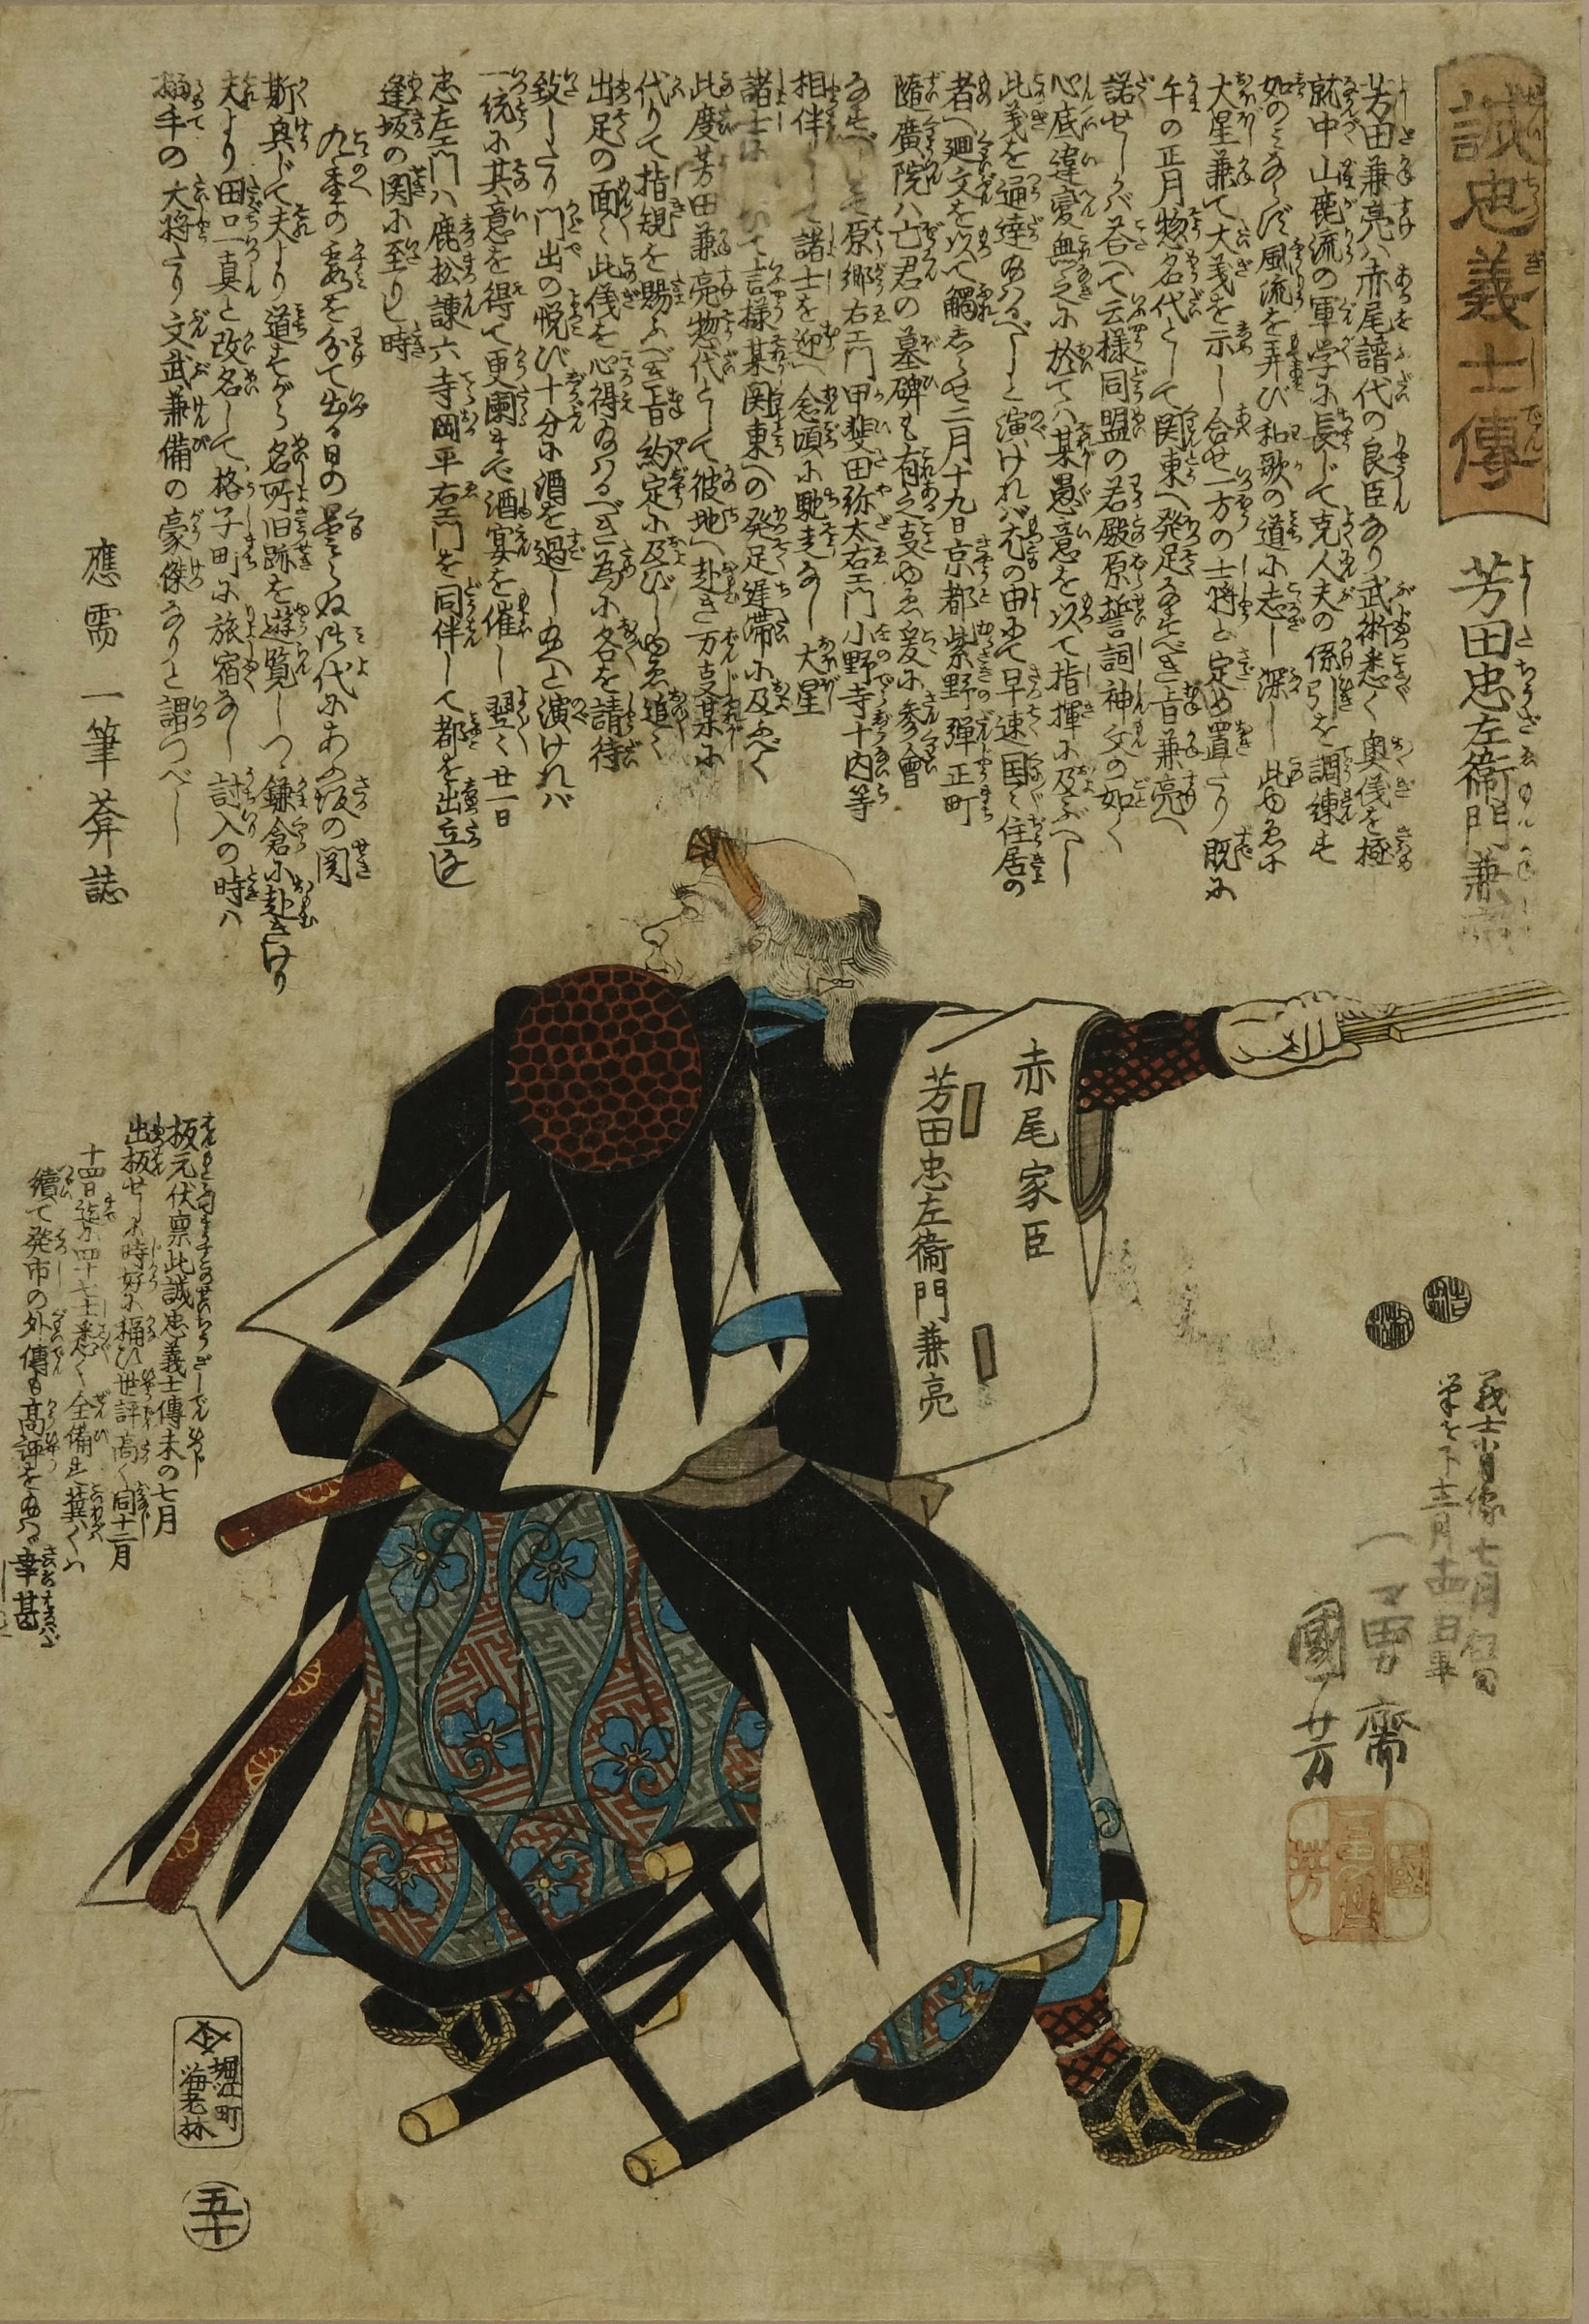 誠忠義士傳
芳田忠左衞門兼
芳田兼亮ハ赤尾譜代の良臣なり武術悉く奥儀を極
就中山鹿流の軍学に長じて克人夫の係引を調練す
如のミならず風流を弄び和歌の道に志し深し此ゆゑに
大星兼て大義を示し合せ一方の士将と定め置たり既に
午の正月惣名代として関東へ発足なすべき旨兼亮へ
諾せしかバ答へて云様同盟の若殿原誓詞神文の如く
心底違変無之に於てハ某愚意を以て指揮に及ぶべし
此義を通達あるべしと演けれバ尤の由にて早速国々住居の
者へ廻文を以て觸しらせ二月十九日京都紫野弾正町
随廣院ハ亡君の墓碑も有之事ゆゑ爰に参會
なすべし 原郷右エ門甲斐田弥太右エ門小野寺十内等
相伴 て諸士を迎へ念頃に馳走なし大星
諸士に て言様某関東への発足遅滞に及ぶべく
此度芳田兼亮惣代として彼地へ赴き万支某に
代りて指規を賜ふべき旨約定に及びしゆゑ追々
出足の面々此儀を心得あるべき為に名を請待
致したり門出の悦び十分に酒を過し あへと演けれバ
一統に其意を得て更闌まで酒宴を催し翌々廿一日
忠左エ門ハ鹿松諌六寺岡平右エ門を同伴して都を出立なし
逢坂の関に至りし時
九重の を分て出る日の曇らぬ御代にあふ坂の関
斯興じて夫より道すがら名所旧跡を遊覧しつゝ鎌倉に赴きけり
夫より田口一真と改名して格子町に旅宿なし討入の時ハ
搦手の大将たり文武兼備の豪傑なりと謂つべし
應需 一筆葊誌
赤尾家臣
芳田忠左衞門兼亮
義士肖像七月
筆を下 十二月十四日畢
一勇齋
國芳
板元伏禀此誠忠義士傳未の七月
出板せしに時好に桶ひ世評高く同十二月
十四日迄に四十七士悉く全備す冀くハ
續て発市の外傳も高評を あハゞ幸甚
堀江町
海老林
五十